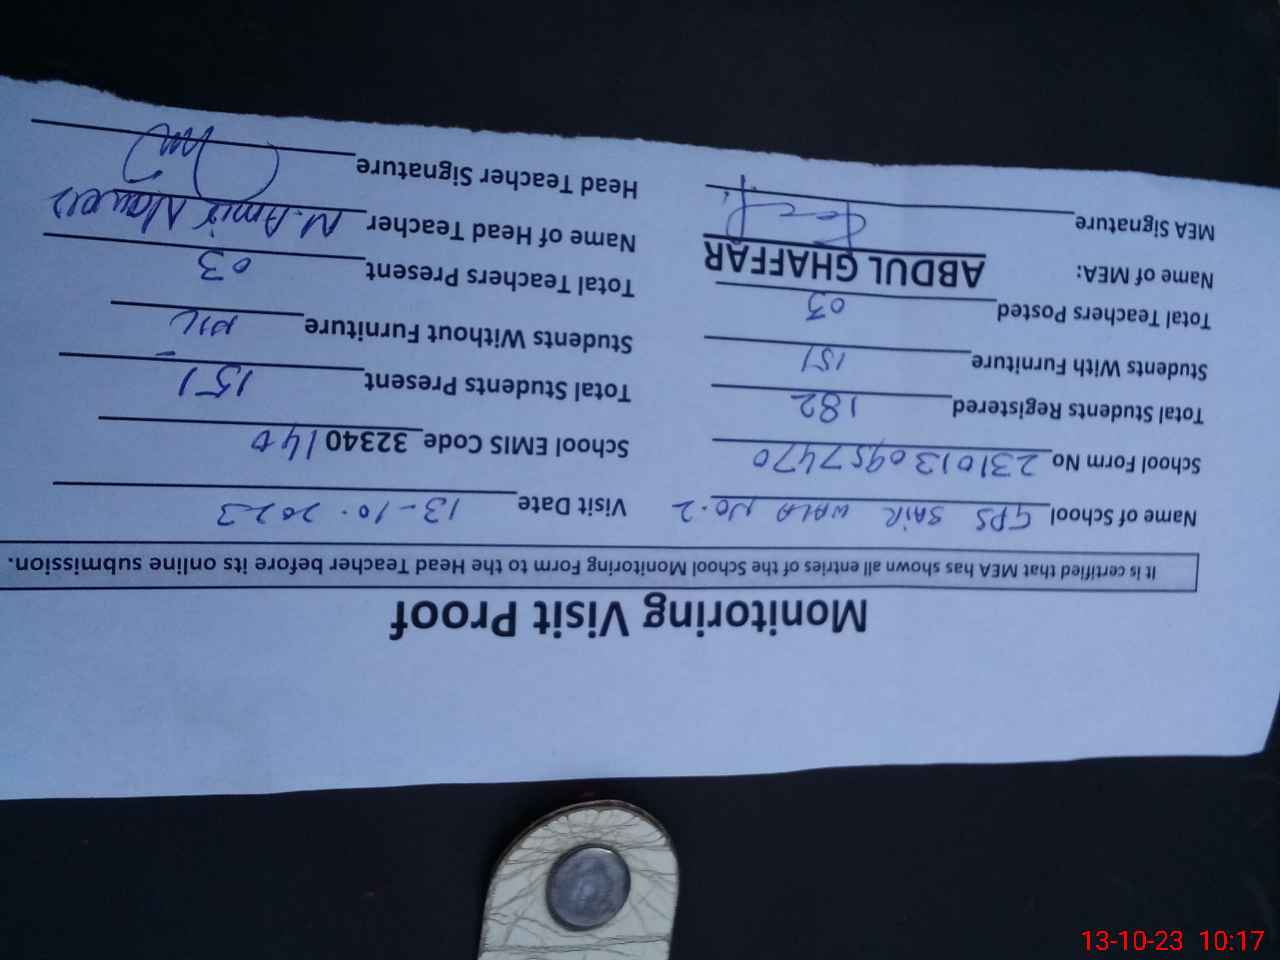 Monitoring Visit Proof
It is certified that MEA has shown all entries of the School Monitoring Form to the Head Teacher before its online submission.
Name of School GPS SAIR WALA NO.2 Visit Date 13-10-2023
School Form No 2310130957470 School EMIS Code 32340140
Total Students Registered 182 Total Students Present 151
Students With Furniture 151 Students Without Furniture NIL
Total Teachers Posted 03 Total Teachers Present 03
Name of MEA: ABDUL GHAFFAR Name of Head Teacher M. Amir Nawees
MEA Signature Head Teacher Signature
13-10-23 10:17